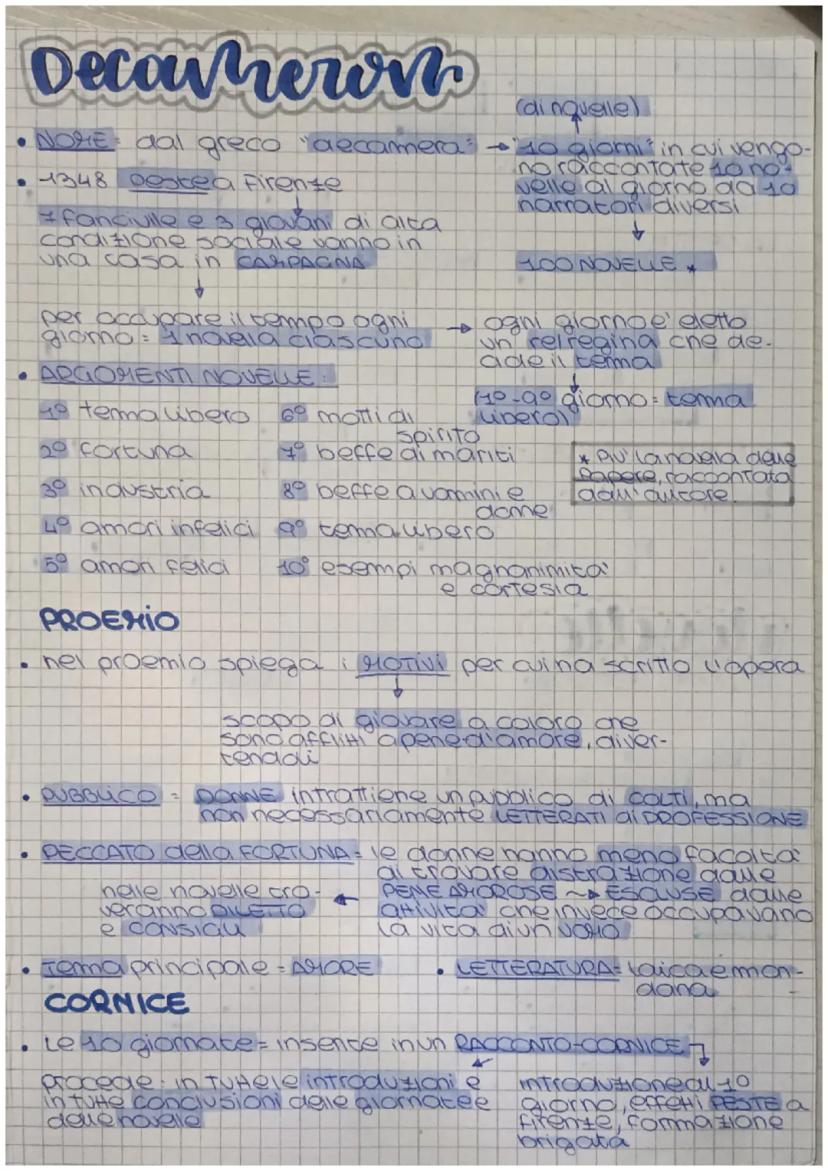 Decameron
(di novelle)
• NOME: dal greco "decamera" → "10 giorni" in cui vengo-
no raccontate 10 no-
velle al giorno da 10
narratori diversi
100 NOVELLE *
• 1348 PESTE a Firenze
7 fanciulle e 3 giovani di alta
condizione sociale vanno in
una casa in CAMPAGNA
per occupare il tempo ogni
giorno = 1 novella ciascuno
→ ogni giorno e' eletto
un re/regina che de-
cide il tema
(1º-9º giorno = tema
libero)
• ARGOMENTI NOVELLE:
1º tema libero
2º fortuna
3º industria
4º amori infelici
5º amori felici
6º motti di
spirito
7º beffe di mariti
8º beffe a uomini e
donne
9º tema libero
10º esempi magnanimita'
e cortesia
* piu' la novella delle
Papere, raccontata
dall'autore
PROEMIO
• nel proemio spiega i MOTIVI per cui ha scritto l'opera
scopo di giovare a coloro che
sono afflitti a pene d'amore, diver-
tendoli
• PUBBLICO = DONNE intrattiene un pubblico di COLTI, ma
non necessariamente LETTERATI di PROFESSIONE
• PECCATO della FORTUNA = le donne hanno meno facolta'
di trovare distrazione dalle
PENE AMOROSE ~> ESCLUSE dalle
attivita' che invece occupavano
la vita di un UOMO
nelle novelle tro- ←
veranno DILETTO
e consigli
• Tema principale = AMORE
• LETTERATURA = laica e mon-
dana
CORNICE
• Le 10 giornate = inserite in un RACCONTO-CORNICE
procede: in tutte le introduzioni e
in tutte conclusioni delle giornate e
delle novelle
introduzione al 1º
giorno, effetti PESTE a
Firenze, formazione
brigata